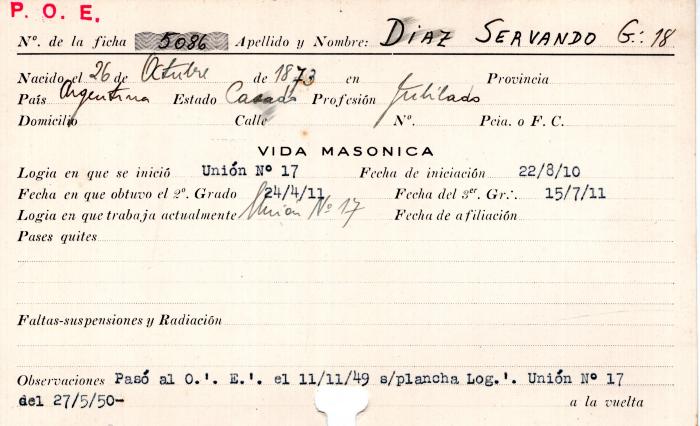 P. O. E.
Nº. de la ficha 5086 Apellido y Nombre: DIAZ SERVANDO G.: 18
Nacido el 26 de Octubre de 1873 en Provincia
País Argentina Estado Casado Profesión Jubilado
Domicilio Calle Nº. Pcia. o F. C.
VIDA MASONICA
Logia en que se inició Unión Nº 17 Fecha de iniciación 22/8/10
Fecha en que obtuvo el 2º. Grado 24/4/11 Fecha del 3er. Gr∴. 15/7/11
Logia en que trabaja actualmente Unión Nº 17 Fecha de afiliación
Pases quites
Faltas-suspensiones y Radiación
Observaciones Pasó al O.'. E.'. el 11/11/49 s/plancha Log.'. Unión Nº 17
del 27/5/50-
a la vuelta